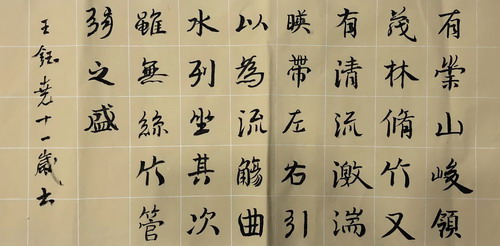 有崇山峻領
茂林脩竹又
有清流激湍
暎帶左右引
以為流觴曲
水列坐其次
雖無絲竹管
弦之盛
王鈺堯十一歲書